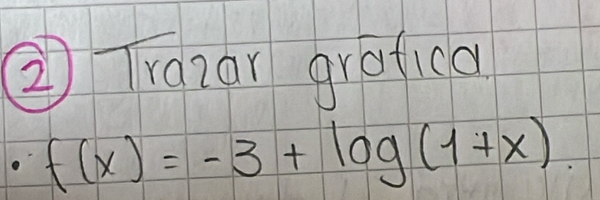 ② Trazar gráfica.
• f(x) = -3 + log(1+x).